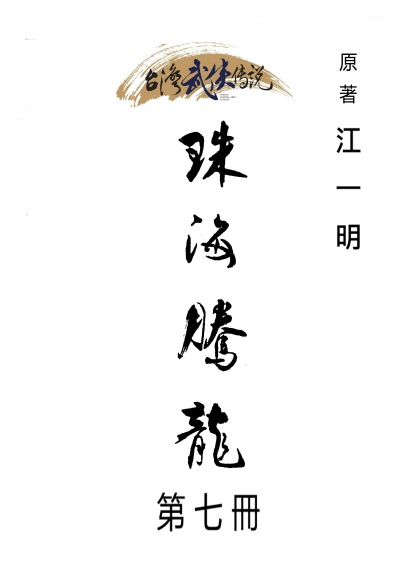 台灣武侠传说
原著 江一明
珠海騰龍
第七冊